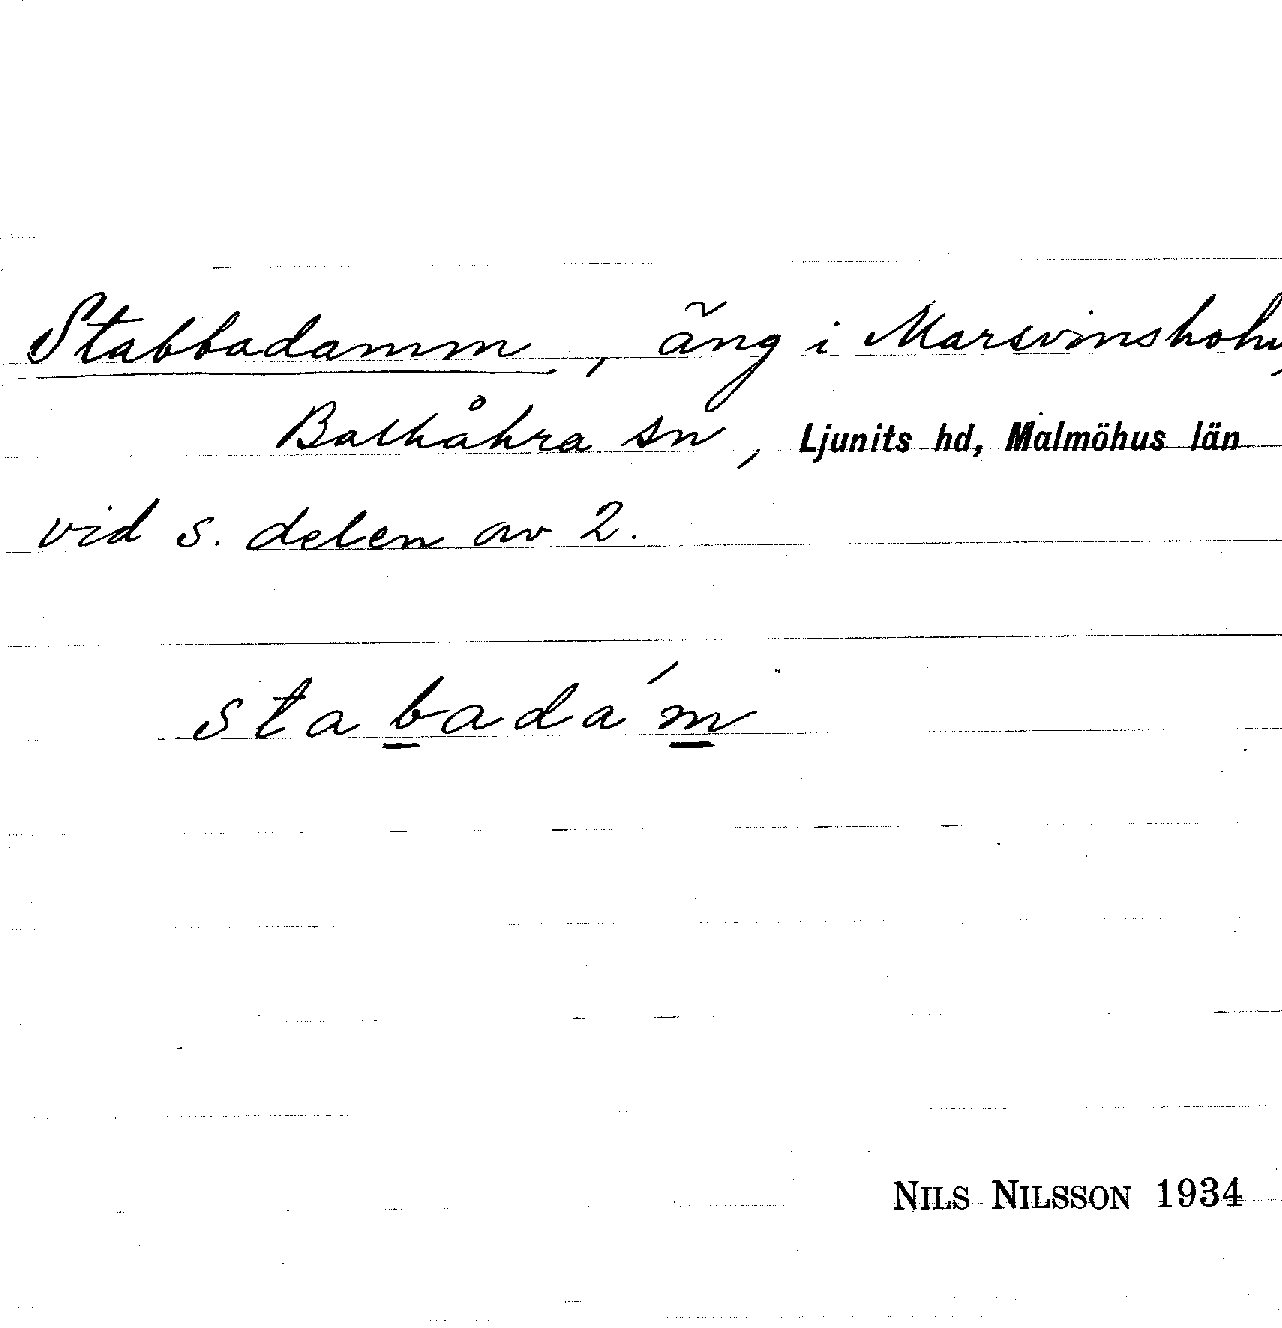 Stabbadamm, äng i Marsvinsholm,
Balkåkra sn, Ljunits hd, Malmöhus län
vid s. delen av 2.
stabadá´m
NILS NILSSON 1934